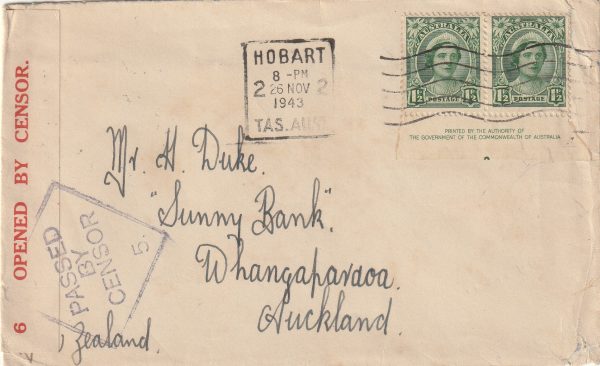 OPENED BY CENSOR.
6
HOBART
8 -PM
2 26 NOV 2
1943
TAS. AUST
AUSTRALIA AUSTRALIA
1½ 1½ 1½ 1½
POSTAGE POSTAGE
PRINTED BY THE AUTHORITY OF
THE GOVERNMENT OF THE COMMONWEALTH OF AUSTRALIA
Mr. H. Duke.
"Sunny Bank".
Whangaparaoa.
Auckland.
Zealand.
PASSED
BY
CENSOR
5.